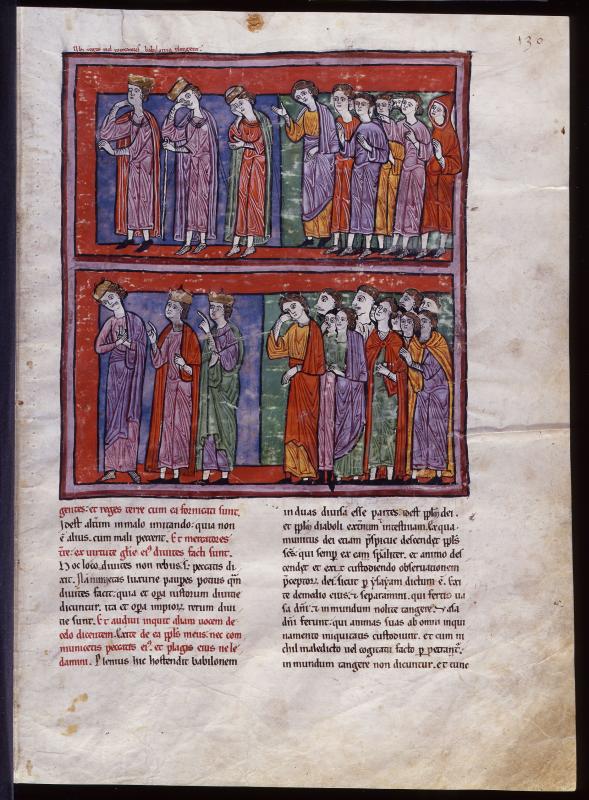 Ubi reges vel mercatores babiloniam plangent.
130
gentes: et reges terre cum ea fornicati sunt.
Idest actum in malo imitando: quia non
ē alius. cum mali pereent. Et mercatores
t̄re: ex virtute glīe eiꝰ divites facti sunt.
Hoc loco. divites non rebus. s; peccatis di
xit. nimietas luxurie paupes potius qm̄
divites facit. quia et opa iustorum divitie
dicuntur. ita et opa impiorꝝ. rerum divi
tie sunt. Et audivi inquit aliam vocem de
celo dicentem. Exite de ea ppl̄s meus: nec com
municetis peccatis eiꝰ. et plagis eius ne le
damini. Plenius hic hostendit babilonem
in duas divisa esse partes. idest ppl̄m dei.
et ppl̄m diaboli. intestinam. Ex qua
munitus dei etiam pspicue descendet ppl̄s
sc̄s: qui semp ex eam spaliter. et animo des
cendet et exiet custodiendo observationem
pceptorꝝ dei. sicut p ysayam dictum ē. Exi
te de medio eiuꝰ. et separamini. qui fertis va
sa dn̄i. et inmundum nolite tangere. vasa
dn̄i ferunt: qui animas suas ab omni inqui
namento iniquitatis custodiunt. et cum ni
chil maledicto vel cogitatu facto
inmundum tangere non dicuntur. et tunc